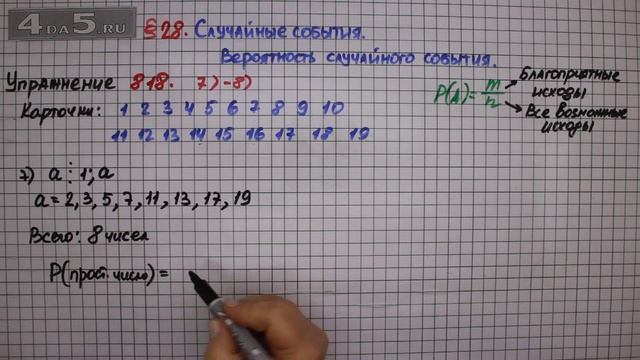 4DA5.RU
§28. Случайные события.
Вероятность случайного события.
Упражнение 818. 7)-8)
Карточки: 1 2 3 4 5 6 7 8 9 10
11 12 13 14 15 16 17 18 19
P(A)=m/n
Благоприятные
исходы
Все возможные
исходы
7) a⋮1; a
a=2,3,5,7,11,13,17,19
Всего: 8 чисел
P(прост. число)=